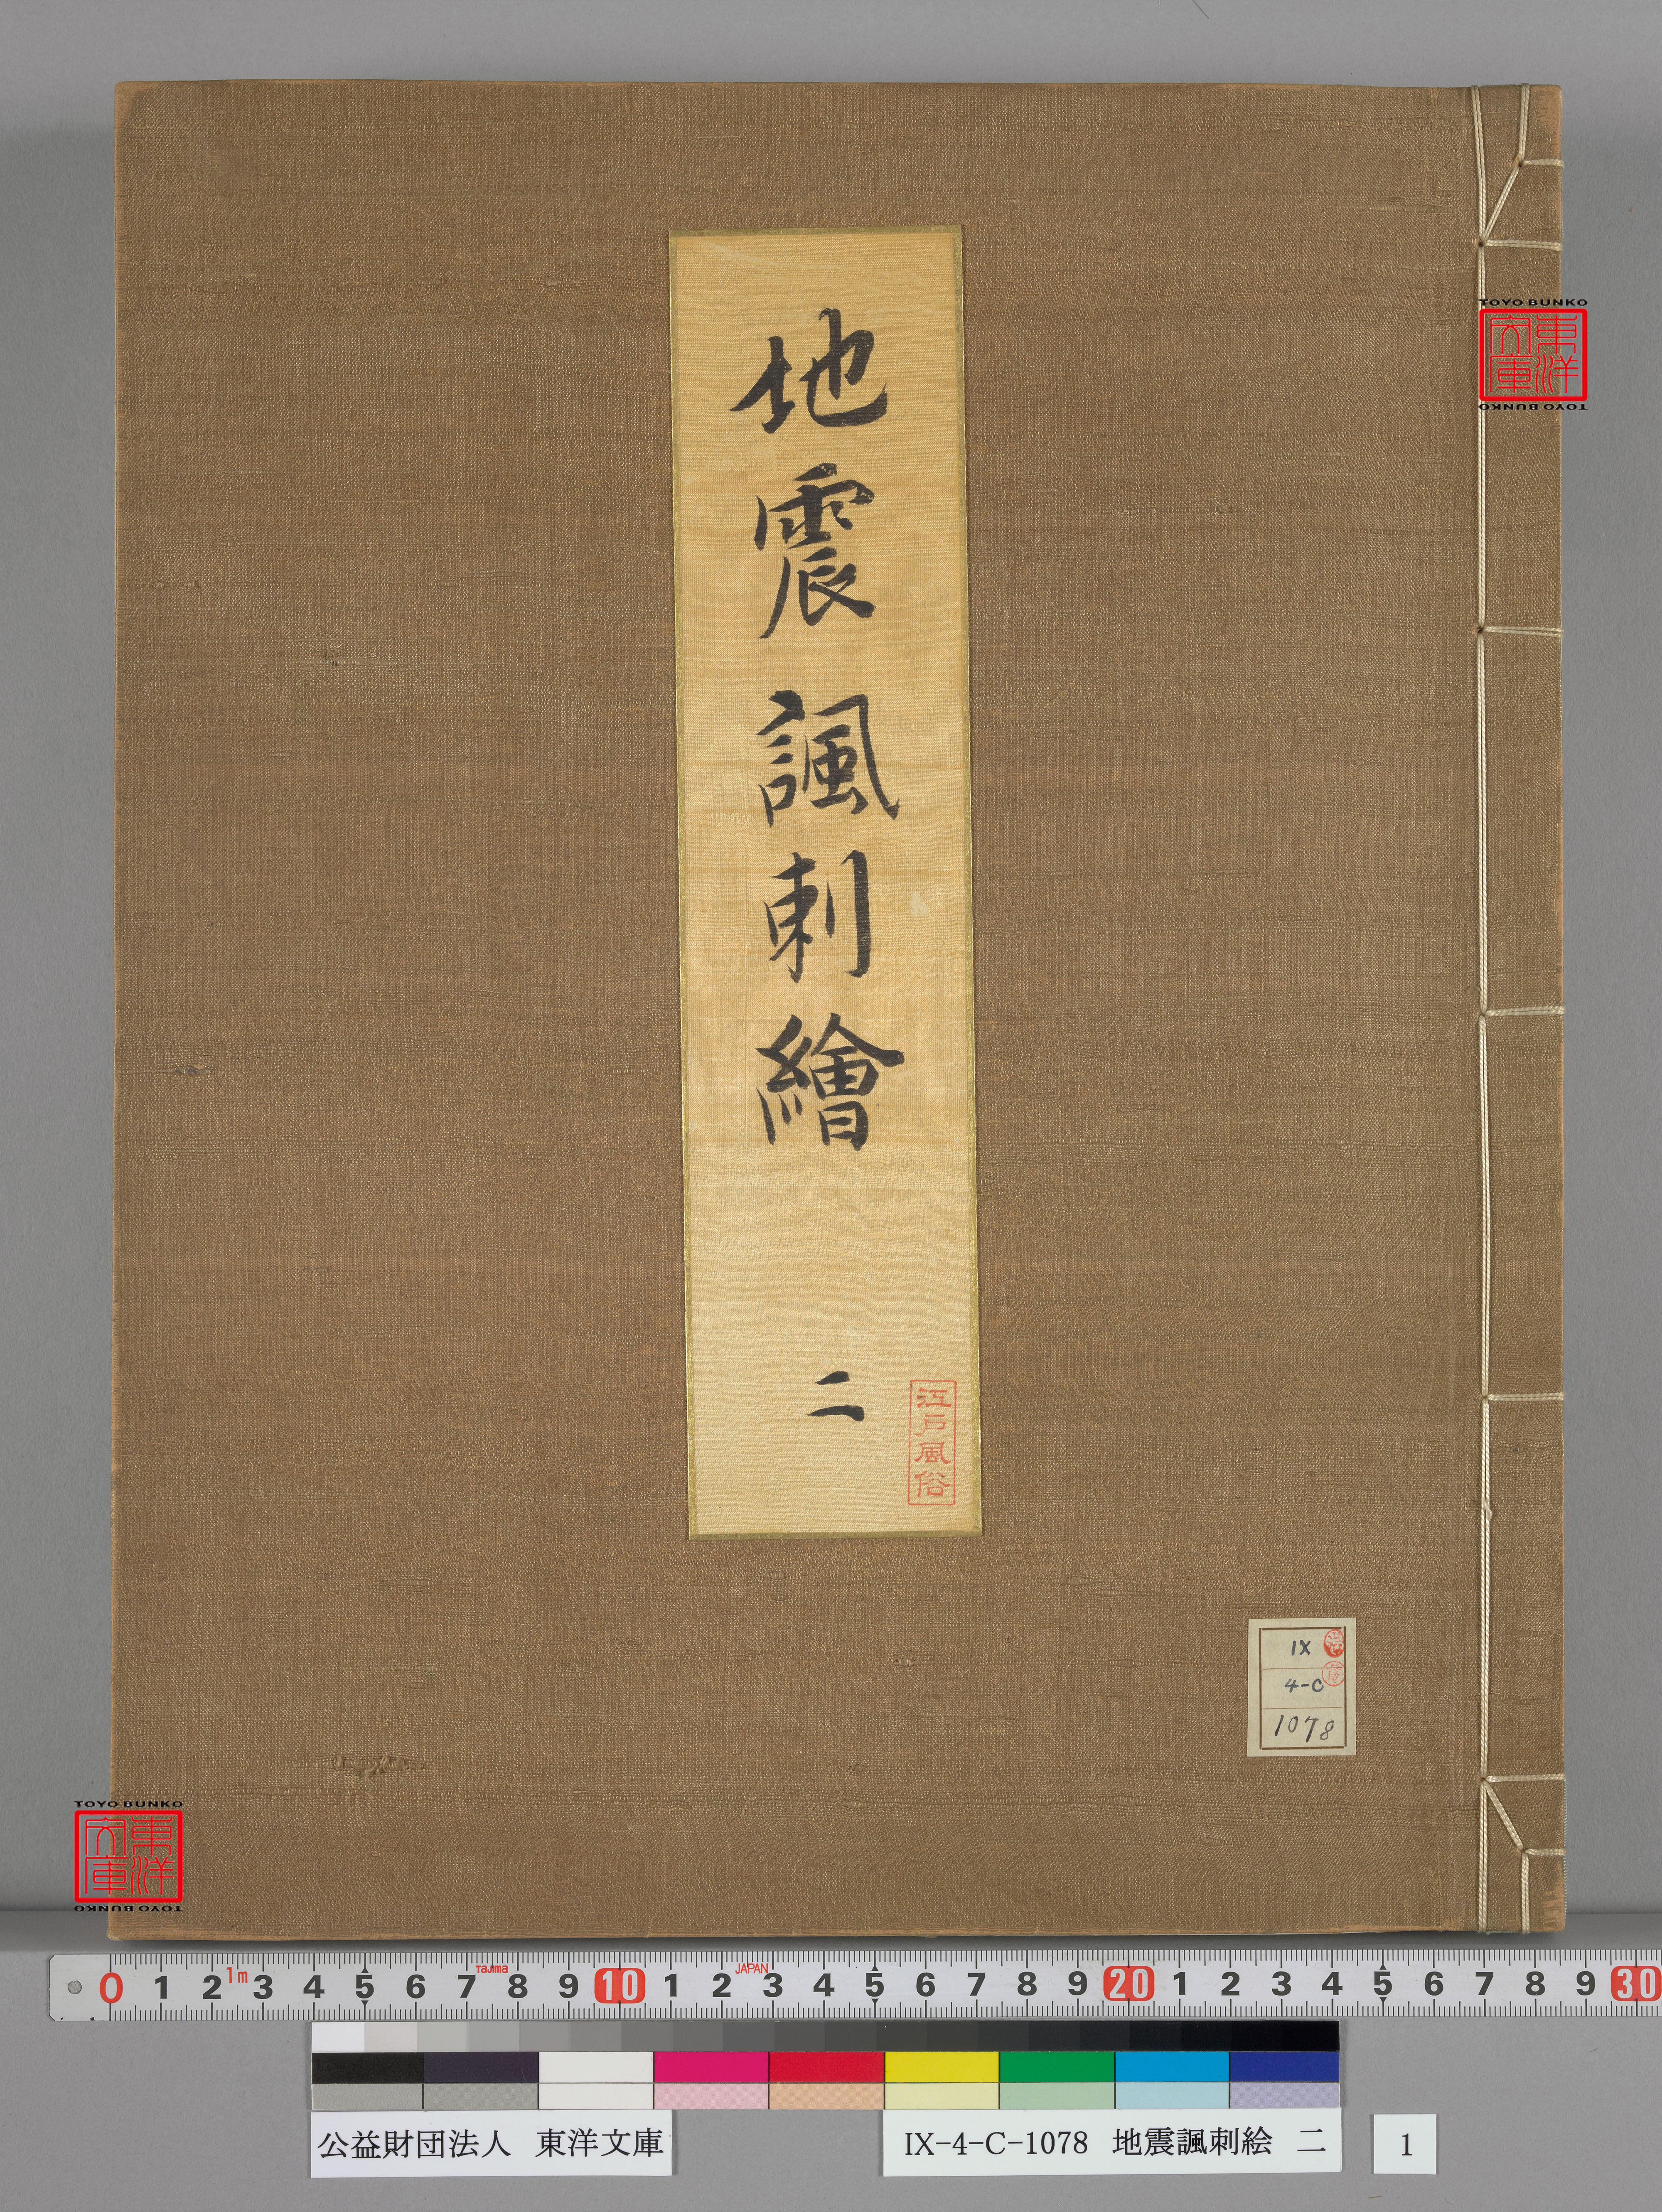 地震諷刺繪
二
江戸風俗
TOYO BUNKO
東洋文庫
TOYO BUNKO
IX
4-C
1078
TOYO BUNKO
東洋文庫
TOYO BUNKO
0 1 2 1m 3 4 5 6 7 Tajima 8 9 10 1 2 JAPAN 3 4 5 6 7 8 9 20 1 2 3 4 5 6 7 8 9 30
公益財団法人 東洋文庫
IX-4-C-1078 地震諷刺絵 二
1